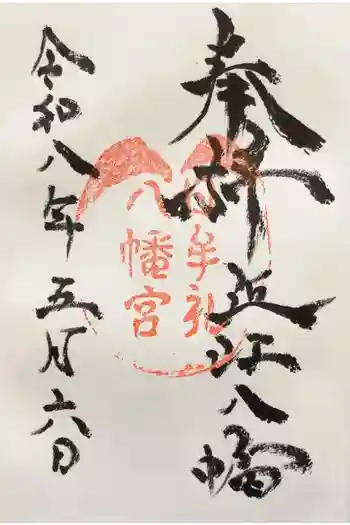 奉拝
近江八幡
日牟礼
八幡宮
令和八年五月六日